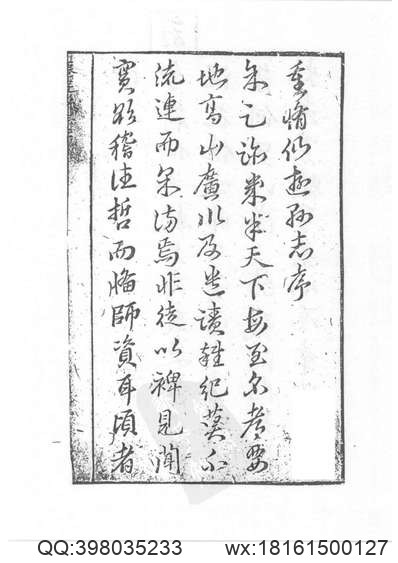 重脩仙遊縣志序
余足跡幾半天下每至名都要
地高山廣川及遺蹟雜紀莫不
流連而采訪焉非徒以裨見聞
實欲稽往哲而備師資耳頃者
QQ:398035233 wx:18161500127